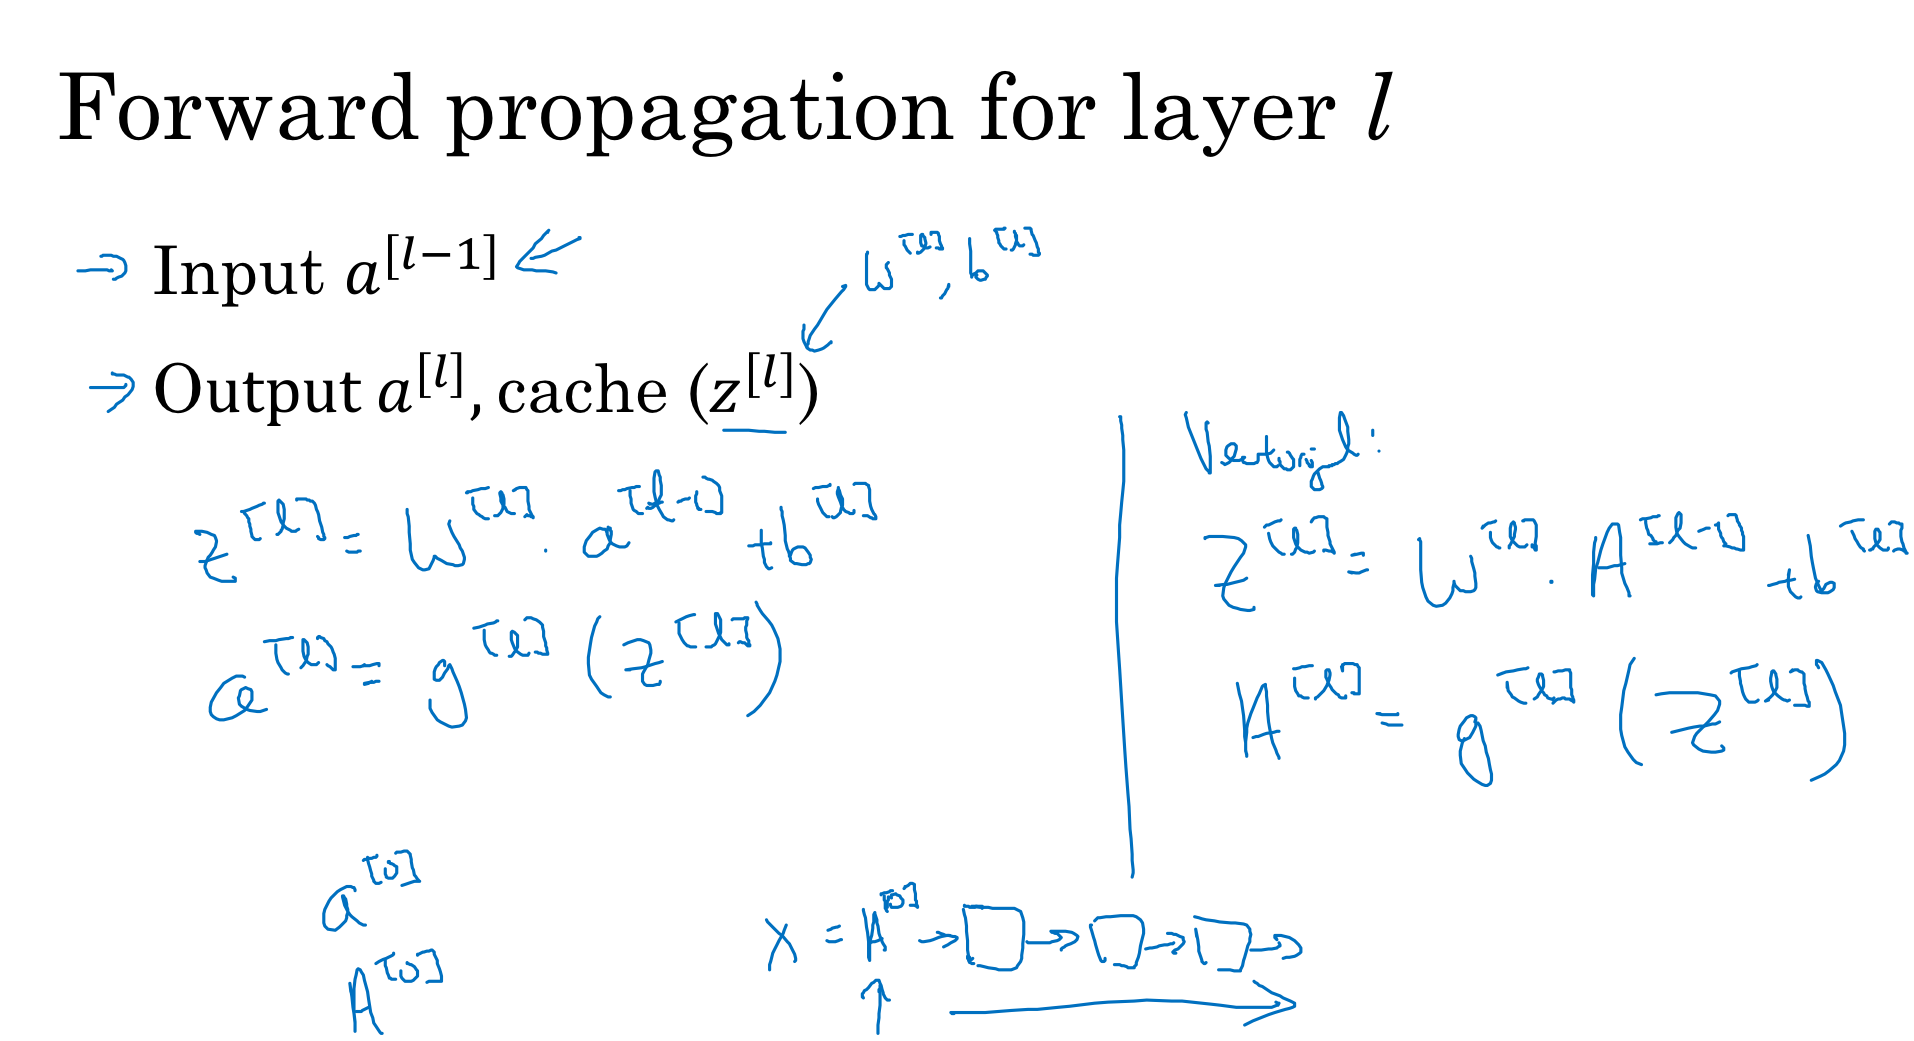 Forward propagation for layer l
→ Input a^[l−1]
W^[l], b^[l]
→ Output a^[l], cache (z^[l])
z^[l] = W^[l] · a^[l-1] + b^[l]
a^[l] = g^[l] (z^[l])
Z^[l] = W^[l] · A^[l-1] + b^[l]
A^[l] = g^[l] (Z^[l])
a^[0]
A^[0]
X = A^[0] → □ → □ → □ →